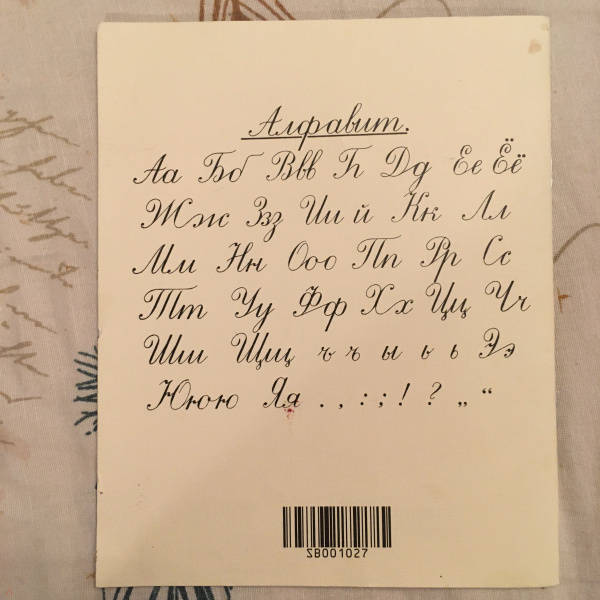 Алфавит.
Аа Бб Ввв Г Дд Ее Ёё
Жж Ззз Ии й Кк Лл
Мм Нн Ооо Пп Рр Сс
Тт Уу Фф Хх Цц Чч
Шш Щщ ъ ъ ы ь ь Ээ
Ююю Яя . , : ; ! ? „ “
SB001027